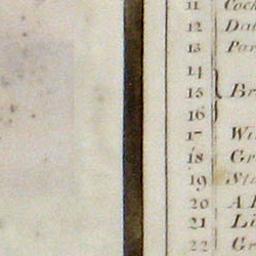 11 Cock
12 Dat
13 Par
14
15 Br
16
17 Wi
18 Gr
19 Sta
20 A
21 Li
22 Gr